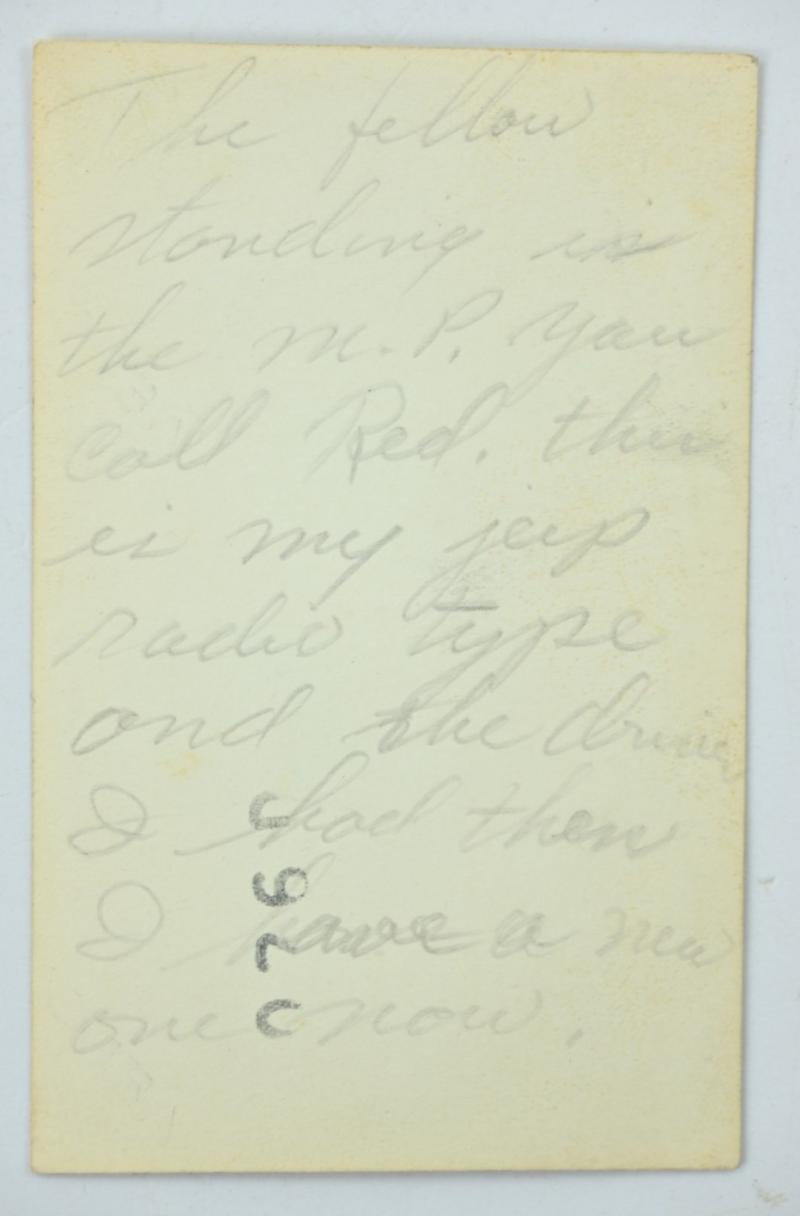 The fellow
standing is
the M.P. you
call Red. this
is my jeep
radio type
and the driver
I had then
I have a new
one now.